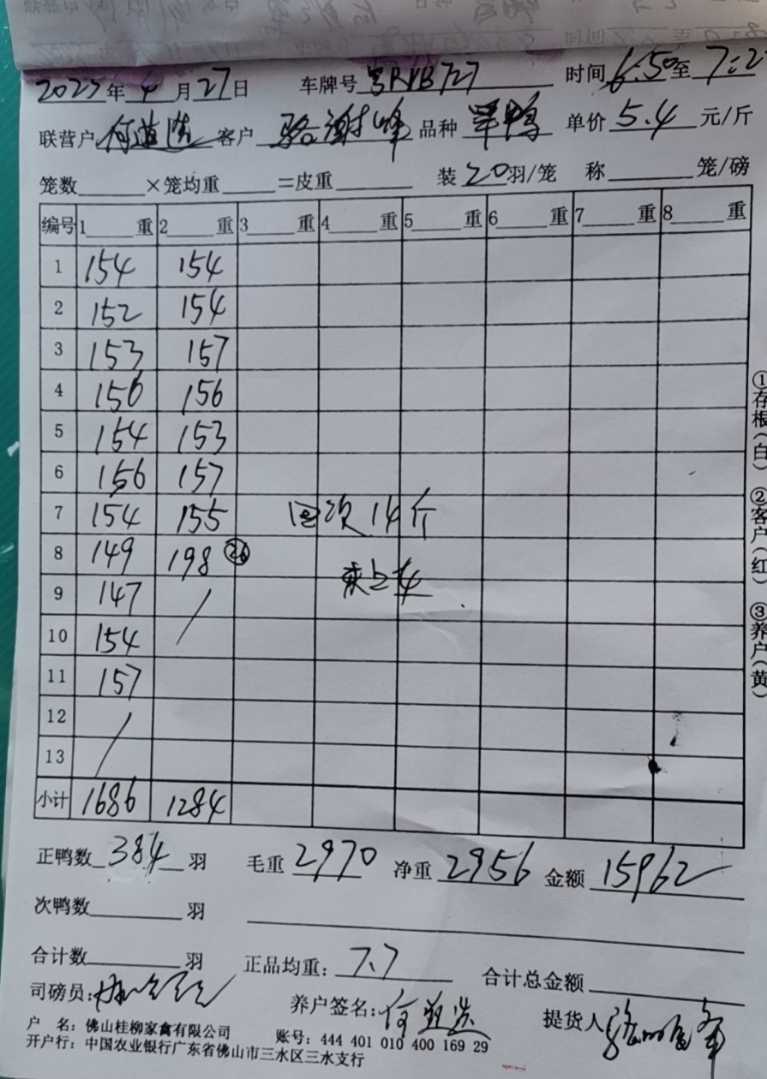 2025年4月27日 车牌号粤RVB727 时间6:50至7:2
联营户 客户 骆谢峰 品种 单价5.4元/斤
笼数______×笼均重______=皮重______ 装20羽/笼 称______笼/磅
编号 1____重 2____重 3____重 4____重 5____重 6____重 7____重 8____重
1 154 154
2 152 154
3 153 157
4 156 156
5 154 153
6 156 157
7 154 155 回次14斤
8 149 198 ㉖
9 147 /
10 154
11 157
12 /
13
小计 1686 1284
正鸭数384羽 毛重2970 净重2956 金额15962
次鸭数______羽
合计数______羽 正品均重:7.7 合计总金额______
司磅员: 养户签名: 提货人
户 名:佛山桂柳家禽有限公司 账号:444 401 010 400 169 29
开户行:中国农业银行广东省佛山市三水区三水支行
①存根(白) ②客户(红) ③养户(黄)